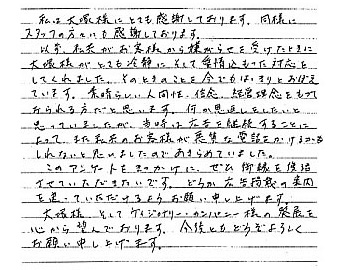 私は大塚様にとても感謝しております。同様に
スタッフの方々にも感謝しております。
以前、私共がお客様から嫌がらせを受けたときに
大塚様がとても冷静にそして愛情込もった対応を
してくれました。そのときのことを今でもはっきりとおぼえ
ています。素晴らしい人間性、信念、経営理念をもって
おられる方だと思います。何か恩返しをしたいと
思っていましたが、当時は広告を継続することに
よって、また私共のお客様が悪質な電話をかけるかも
しれないと思いましたのであきらめていました。
このアンケートをきっかけに、ぜひ御縁を復活
させていただきたいです。どうか広告掲載の案内
を送っていただけるようお願い申し上げます。
大塚様、そして カンパニー様の発展を
心から望んでおります。今後ともどうぞよろしく
お願い申し上げます。